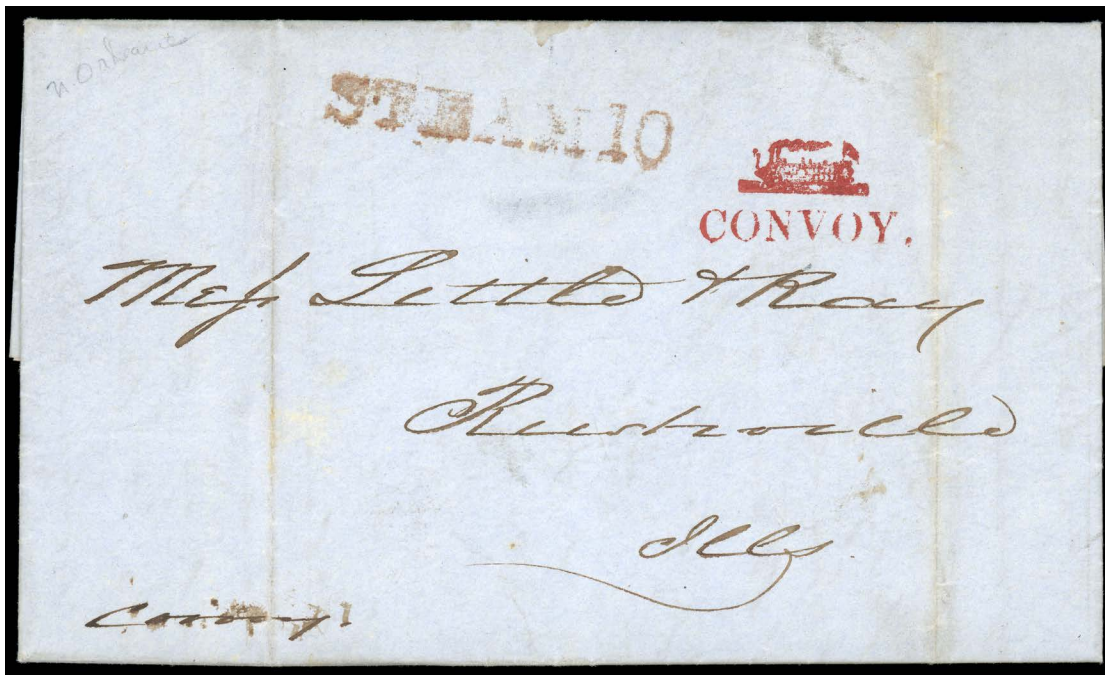 N. Orleans
STEAM 10
CONVOY.
Mess Little & Ray
Rushville
Ills
Convoy.